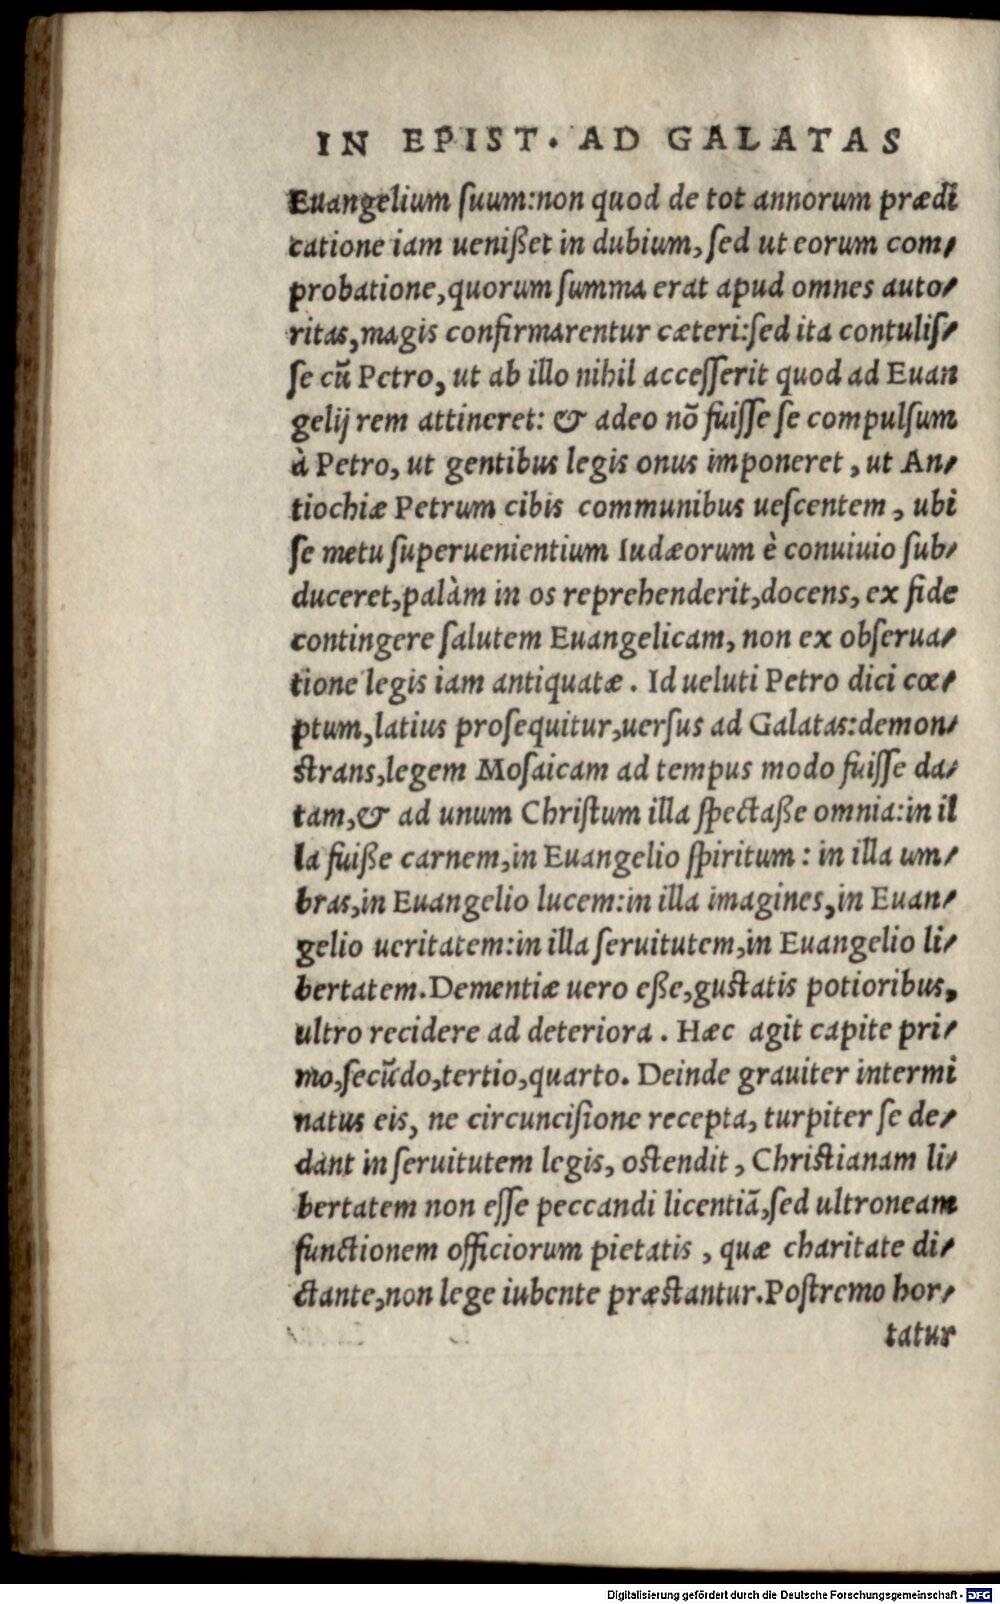 IN EPIST. AD GALATAS
Euangelium ſuum:non quod de tot annorum prædi
catione iam uenißet in dubium, ſed ut eorum com⸗
probatione,quorum ſumma erat apud omnes auto⸗
ritas,magis confirmarentur cæteri:ſed ita contuliſ⸗
ſe cū Petro, ut ab illo nihil acceſſerit quod ad Euan
gelij rem attineret: & adeo nō fuiſſe ſe compulſum
à Petro, ut gentibus legis onus imponeret, ut An⸗
tiochiæ Petrum cibis communibus ueſcentem, ubi
ſe metu ſuperuenientium Iudæorum è conuiuio ſub⸗
duceret,palàm in os reprehenderit,docens, ex fide
contingere ſalutem Euangelicam, non ex obſerua⸗
tione legis iam antiquatæ. Id ueluti Petro dici cœ⸗
ptum,latius proſequitur,uerſus ad Galatas:demon⸗
strans,legem Moſaicam ad tempus modo fuiſſe da⸗
tam,& ad unum Chriſtum illa ſpectaße omnia:in il
la fuiße carnem,in Euangelio ſpiritum: in illa um⸗
bras,in Euangelio lucem:in illa imagines,in Euan⸗
gelio ueritatem:in illa ſeruitutem,in Euangelio li⸗
bertatem.Dementiæ uero eße,gustatis potioribus,
ultro recidere ad deteriora. Hæc agit capite pri⸗
mo,ſecūdo,tertio,quarto. Deinde grauiter intermi
natus eis, ne circunciſione recepta, turpiter ſe de⸗
dant in ſeruitutem legis, ostendit, Christianam li⸗
bertatem non eſſe peccandi licentiā,ſed ultroneam
functionem officiorum pietatis, quæ charitate di⸗
ctante,non lege iubente præstantur.Poſtremo hor⸗
tatur
Digitalisierung gefördert durch die Deutsche Forschungsgemeinschaft - DFG